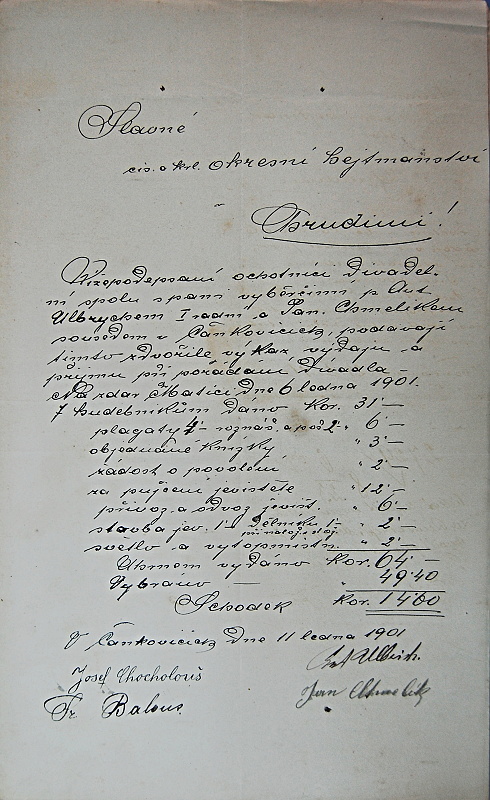 Slavné
cís. a kr. okresní hejtmanství
Chrudimi!
Nízepodepsaní ochotníci divadel-
ní spolu s pani výběrčími, p. Ant
Ulbrychem I radní a Jan. Chmelikem
sousedem v Čankovicích, podavají
timto zdvořile výkaz výdaju a
příjmu při pořádání divadla
Na zdar Matici, dne 6 ledna 1901.
7 hudebníkům dáno Kor. 31·–
plagaty 4– roznáš. a poš 2·– " 6·–
objednané knížky " 3·–
žádost o povolení " 2·–
za pujčení jevistěte " 12·–
přivoz a odvoz jevist. " 6·–
stavba jev. 1·– Dělníku 1·– " 2·–
při
světlo a vytop místn. " 2·–
Uhrnem vydáno Kor. 64·–
Vybráno – " 49·40
Schodek Kor. 14·60
V Čankovicích dne 11 ledna 1901
Ant Ulbrich.
Josef Chocholouš
Jan Chmelik
Fr Balous.